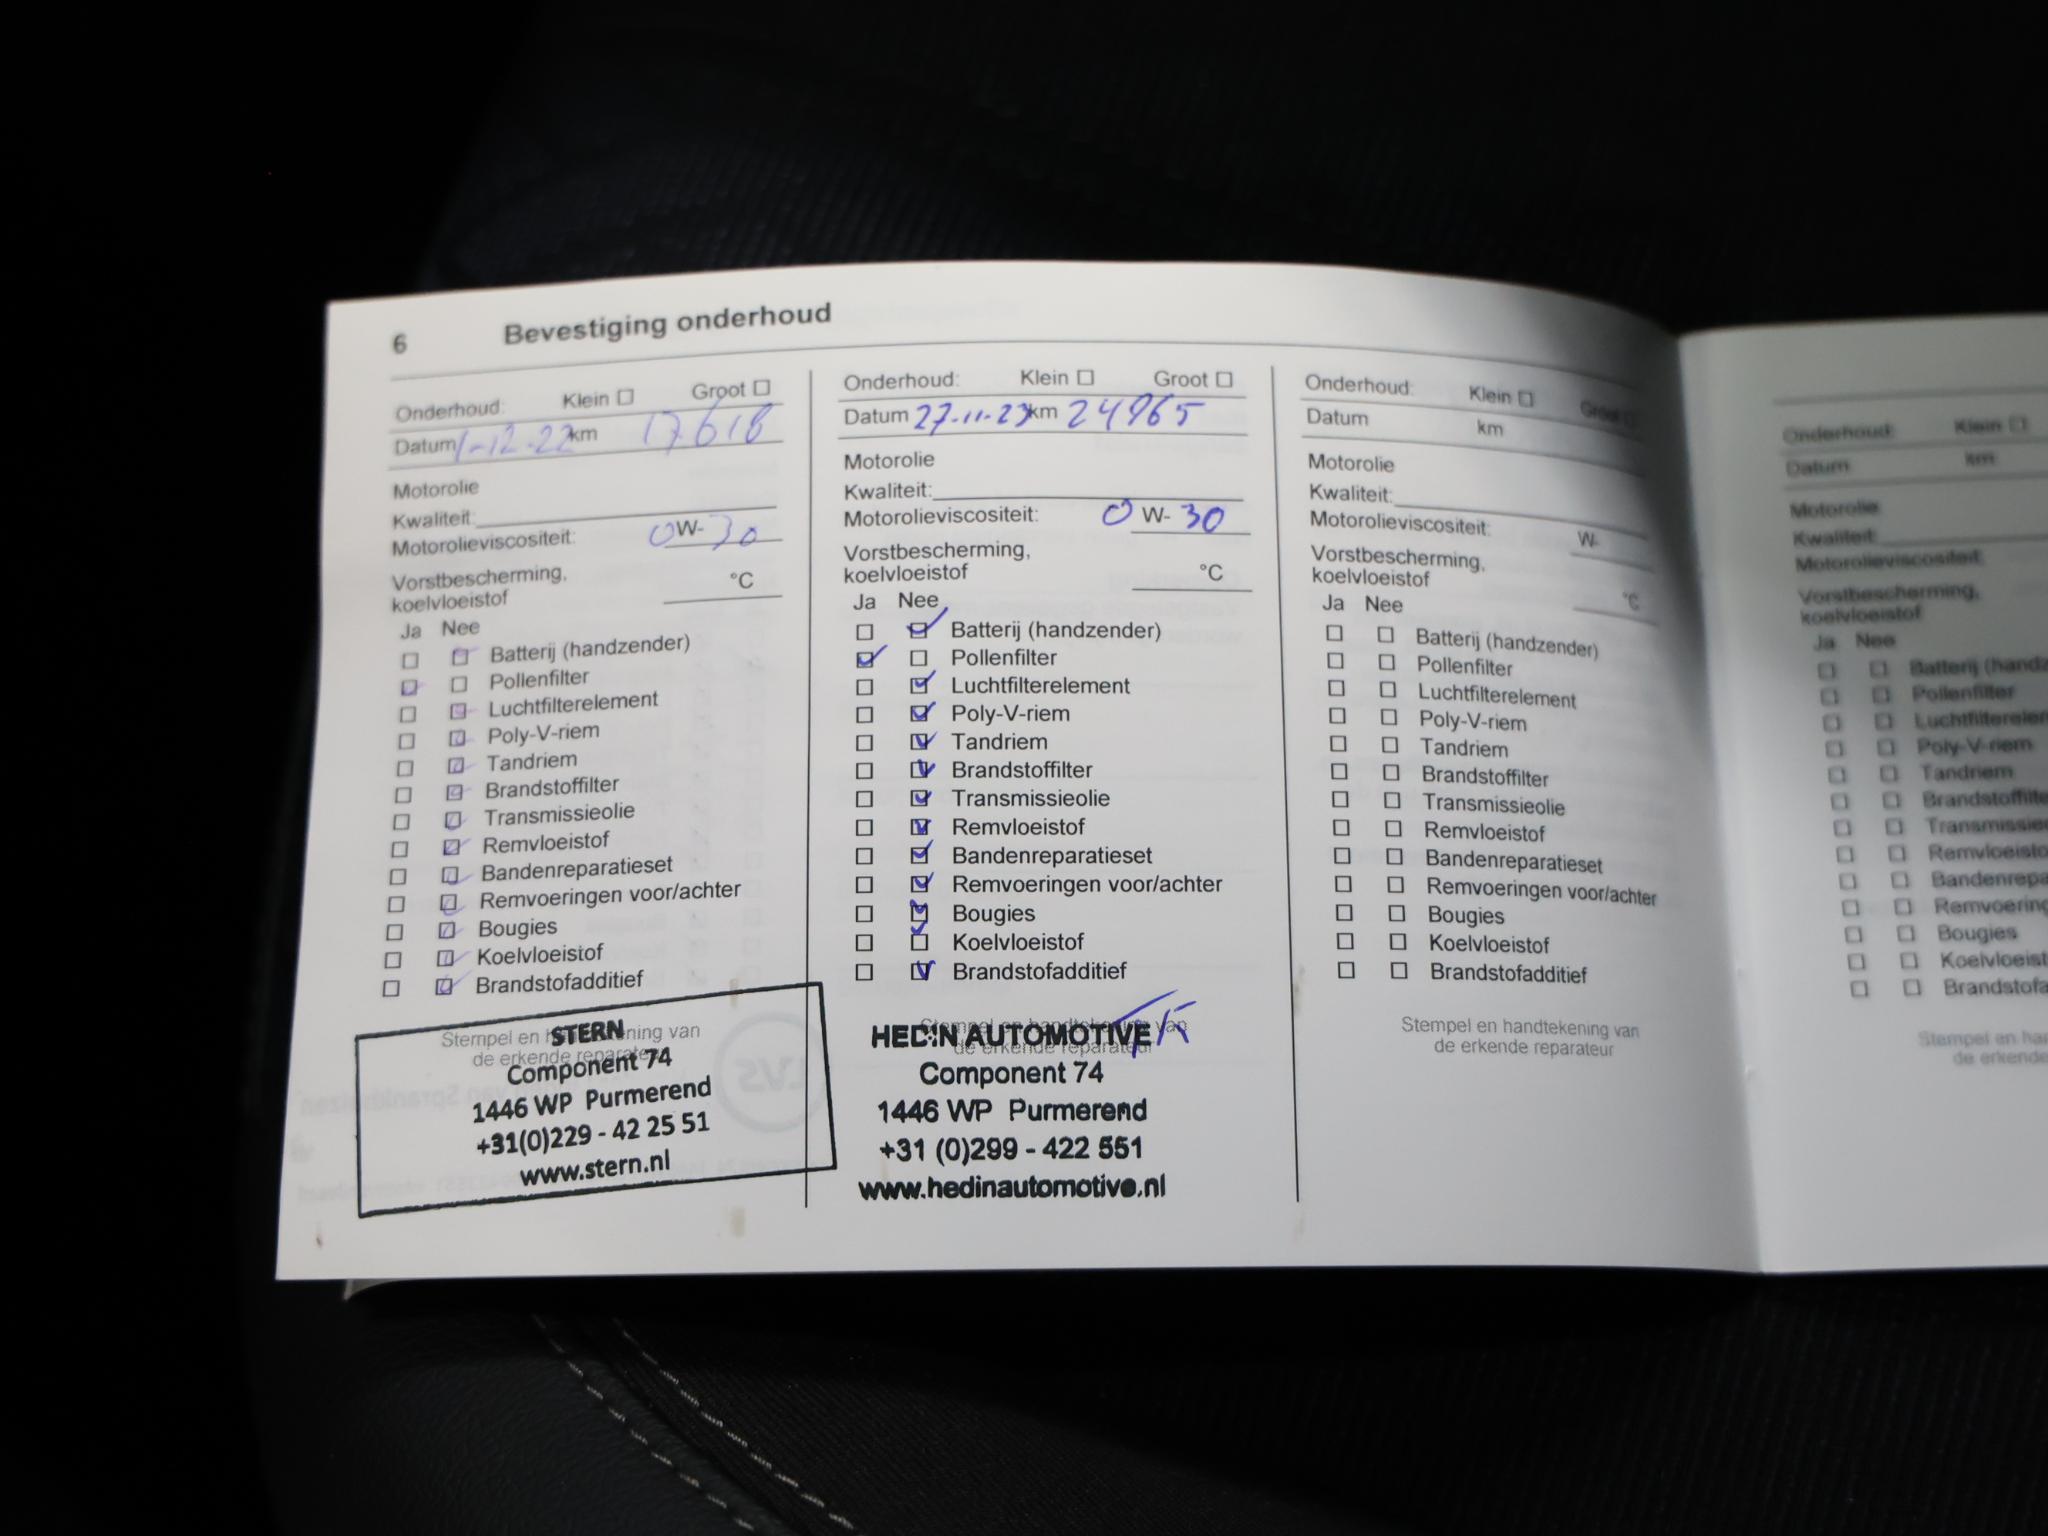 6 Bevestiging onderhoud
Onderhoud: Klein Groot
Datum 1-12-22 km 17618
Motorolie
Kwaliteit:
Motorolieviscositeit: 0 W- 30
Vorstbescherming,
koelvloeistof °C
Ja Nee
Batterij (handzender)
Pollenfilter
Luchtfilterelement
Poly-V-riem
Tandriem
Brandstoffilter
Transmissieolie
Remvloeistof
Bandenreparatieset
Remvoeringen voor/achter
Bougies
Koelvloeistof
Brandstofadditief
Stempel en handtekening van
de erkende reparateur
STERN
Component 74
1446 WP Purmerend
+31(0)229 - 42 25 51
www.stern.nl
Onderhoud: Klein Groot
Datum 27-11-23 km 24965
Motorolie
Kwaliteit:
Motorolieviscositeit: 0 W- 30
Vorstbescherming,
koelvloeistof °C
Ja Nee
Batterij (handzender)
Pollenfilter
Luchtfilterelement
Poly-V-riem
Tandriem
Brandstoffilter
Transmissieolie
Remvloeistof
Bandenreparatieset
Remvoeringen voor/achter
Bougies
Koelvloeistof
Brandstofadditief
Stempel en handtekening van
de erkende reparateur
HEDIN AUTOMOTIVE
Component 74
1446 WP Purmerend
+31 (0)299 - 422 551
www.hedinautomotive.nl
Onderhoud: Klein Groot
Datum km
Motorolie
Kwaliteit:
Motorolieviscositeit: W-
Vorstbescherming,
koelvloeistof °C
Ja Nee
Batterij (handzender)
Pollenfilter
Luchtfilterelement
Poly-V-riem
Tandriem
Brandstoffilter
Transmissieolie
Remvloeistof
Bandenreparatieset
Remvoeringen voor/achter
Bougies
Koelvloeistof
Brandstofadditief
Stempel en handtekening van
de erkende reparateur
Onderhoud: Klein
Datum km
Motorolie
Kwaliteit:
Motorolieviscositeit:
Vorstbescherming,
koelvloeistof
Ja Nee
Batterij (handz
Pollenfilter
Luchtfilterelem
Poly-V-riem
Tandriem
Brandstoffilte
Transmissie
Remvloeisto
Bandenrepa
Remvoering
Bougies
Koelvloeist
Brandstofa
Stempel en ha
de erkende